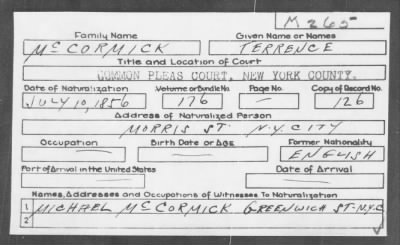 M 265
Family Name Given Name or Names
McCORMICK TERRENCE
Title and Location of Court
COMMON PLEAS COURT, NEW YORK COUNTY.
Date of Naturalization Volume or Bundle No. Page No. Copy of Record No.
JULY 10, 1856 176 — 126
Address of Naturalized Person
MORRIS ST. N.Y. CITY
Occupation Birth Date or Age Former Nationality
— — ENGLISH
Port of Arrival in the United States Date of Arrival
— —
Names, Addresses and Occupations of Witnesses To Naturalization
1 MICHAEL McCORMICK GREENWICH ST-N.Y.C
2